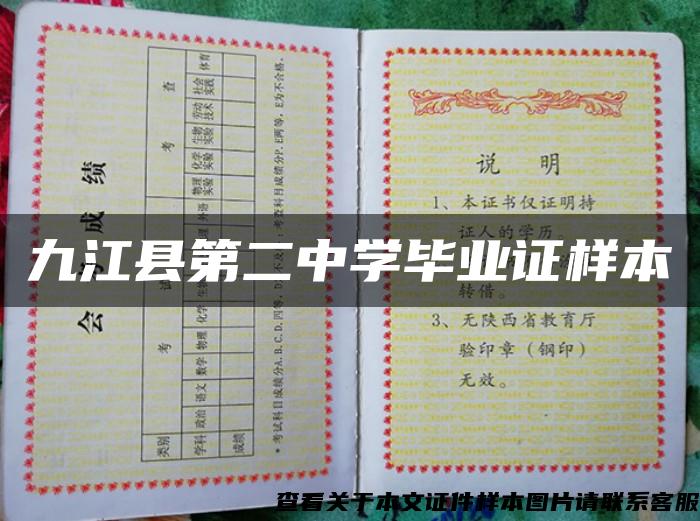 九江县第二中学毕业证样本
会 成 绩
类别 考 试 考 查
学科 政治 语文 数学 物理 化学 生物 理 外语 物理实验 化学实验 生物实验 劳动技术 社会实践 体育
成绩
*考试科目成绩分A、B、C、D、四等，D 不及 ；考查科目成绩分P、E两等，E为不合格。
说 明
1、本证书仅证明持
证人的学历。
转借。
3、无陕西省教育厅
验印章（钢印）
无效。
查看关于本文证件样本图片请联系客服